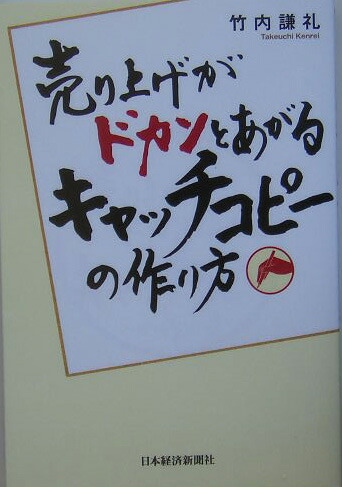 竹内謙礼
Takeuchi Kenrei
売り上げが
ドカンとあがる
キャッチコピー
の作り方
日本経済新聞社